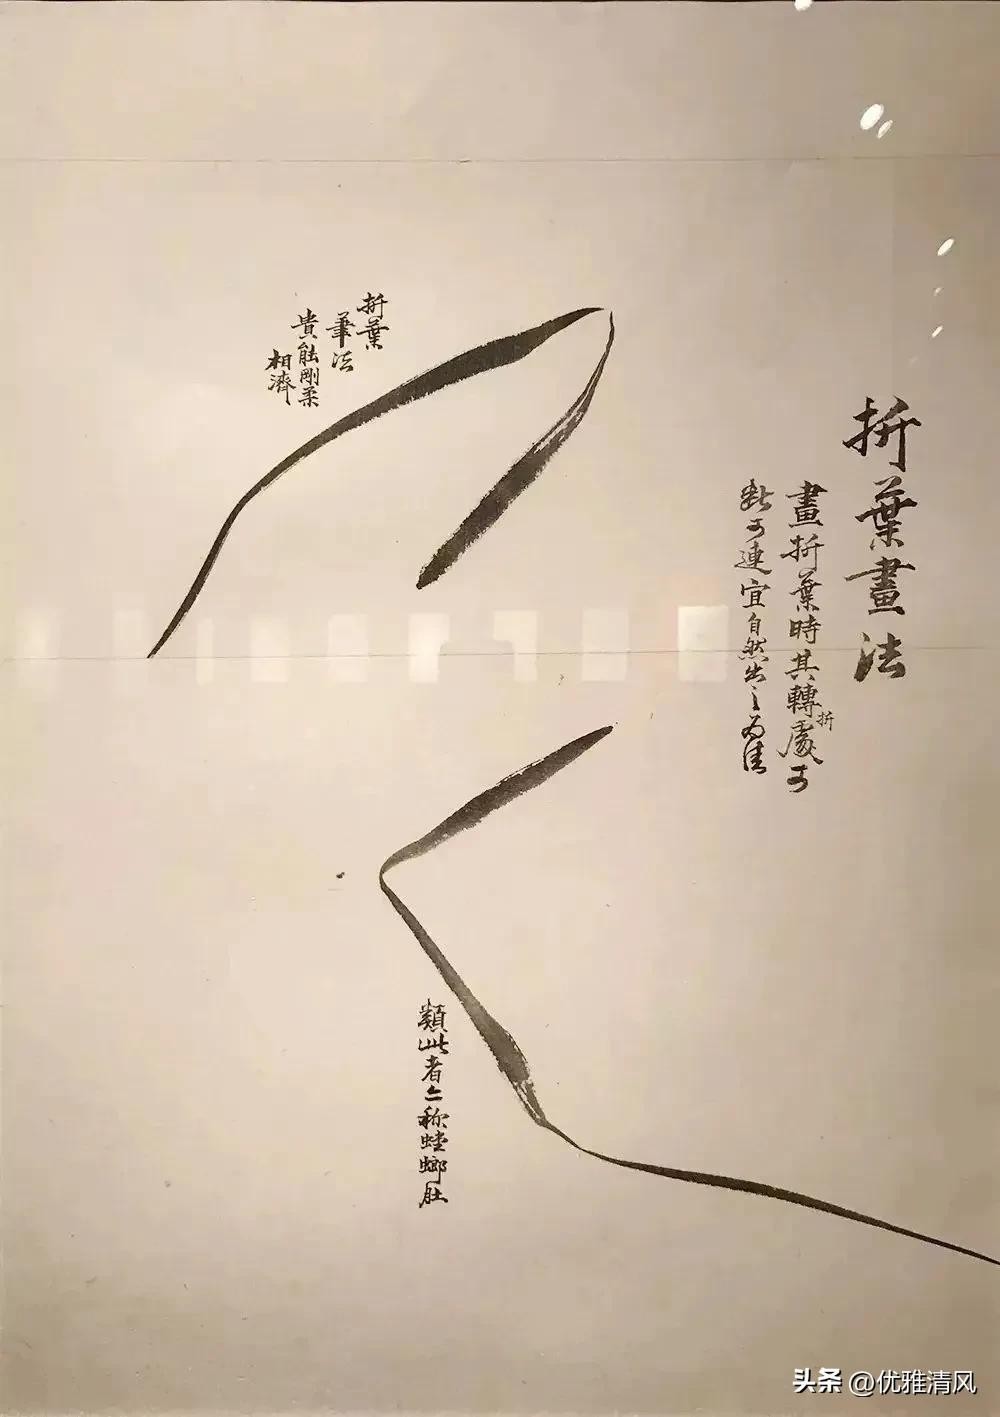 折葉畫法
畫折葉時其轉折處可
斷可連宜自然出之為佳
折葉
筆法
貴能剛柔
相濟
類此者亦称螳螂肚
头条 @优雅清风